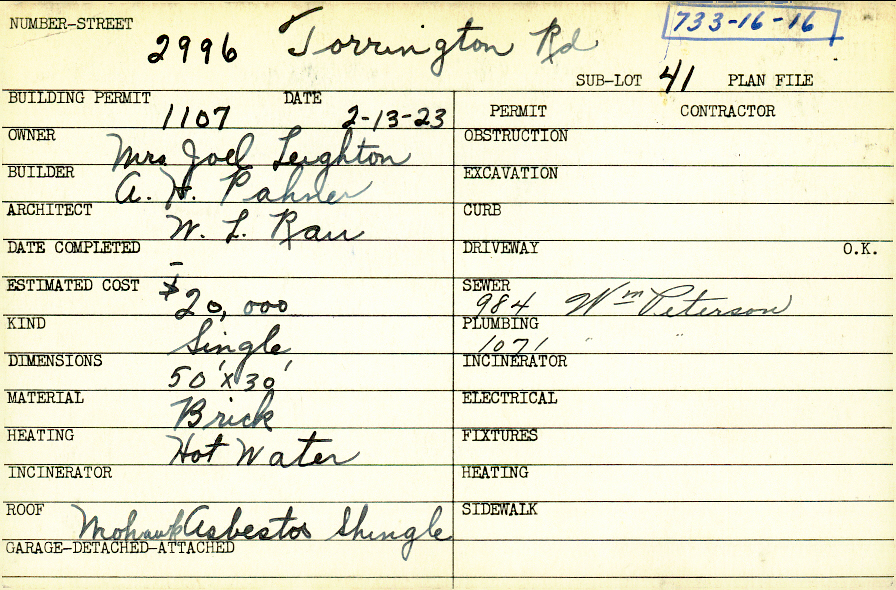 NUMBER-STREET 2996 Torrington Rd 733-16-16
SUB-LOT 41 PLAN FILE
BUILDING PERMIT 1107 DATE 2-13-23
OWNER Mrs Joel Leighton
BUILDER A. H. Pahner
ARCHITECT W. L. Rau
DATE COMPLETED -
ESTIMATED COST $20,000
KIND Single
DIMENSIONS 50'x30'
MATERIAL Brick
HEATING Hot Water
INCINERATOR
ROOF Mohawk Asbestos Shingle
GARAGE-DETACHED-ATTACHED
PERMIT CONTRACTOR
OBSTRUCTION
EXCAVATION
CURB
DRIVEWAY O.K.
SEWER 984 Wm Peterson
PLUMBING 1071 " "
INCINERATOR
ELECTRICAL
FIXTURES
HEATING
SIDEWALK